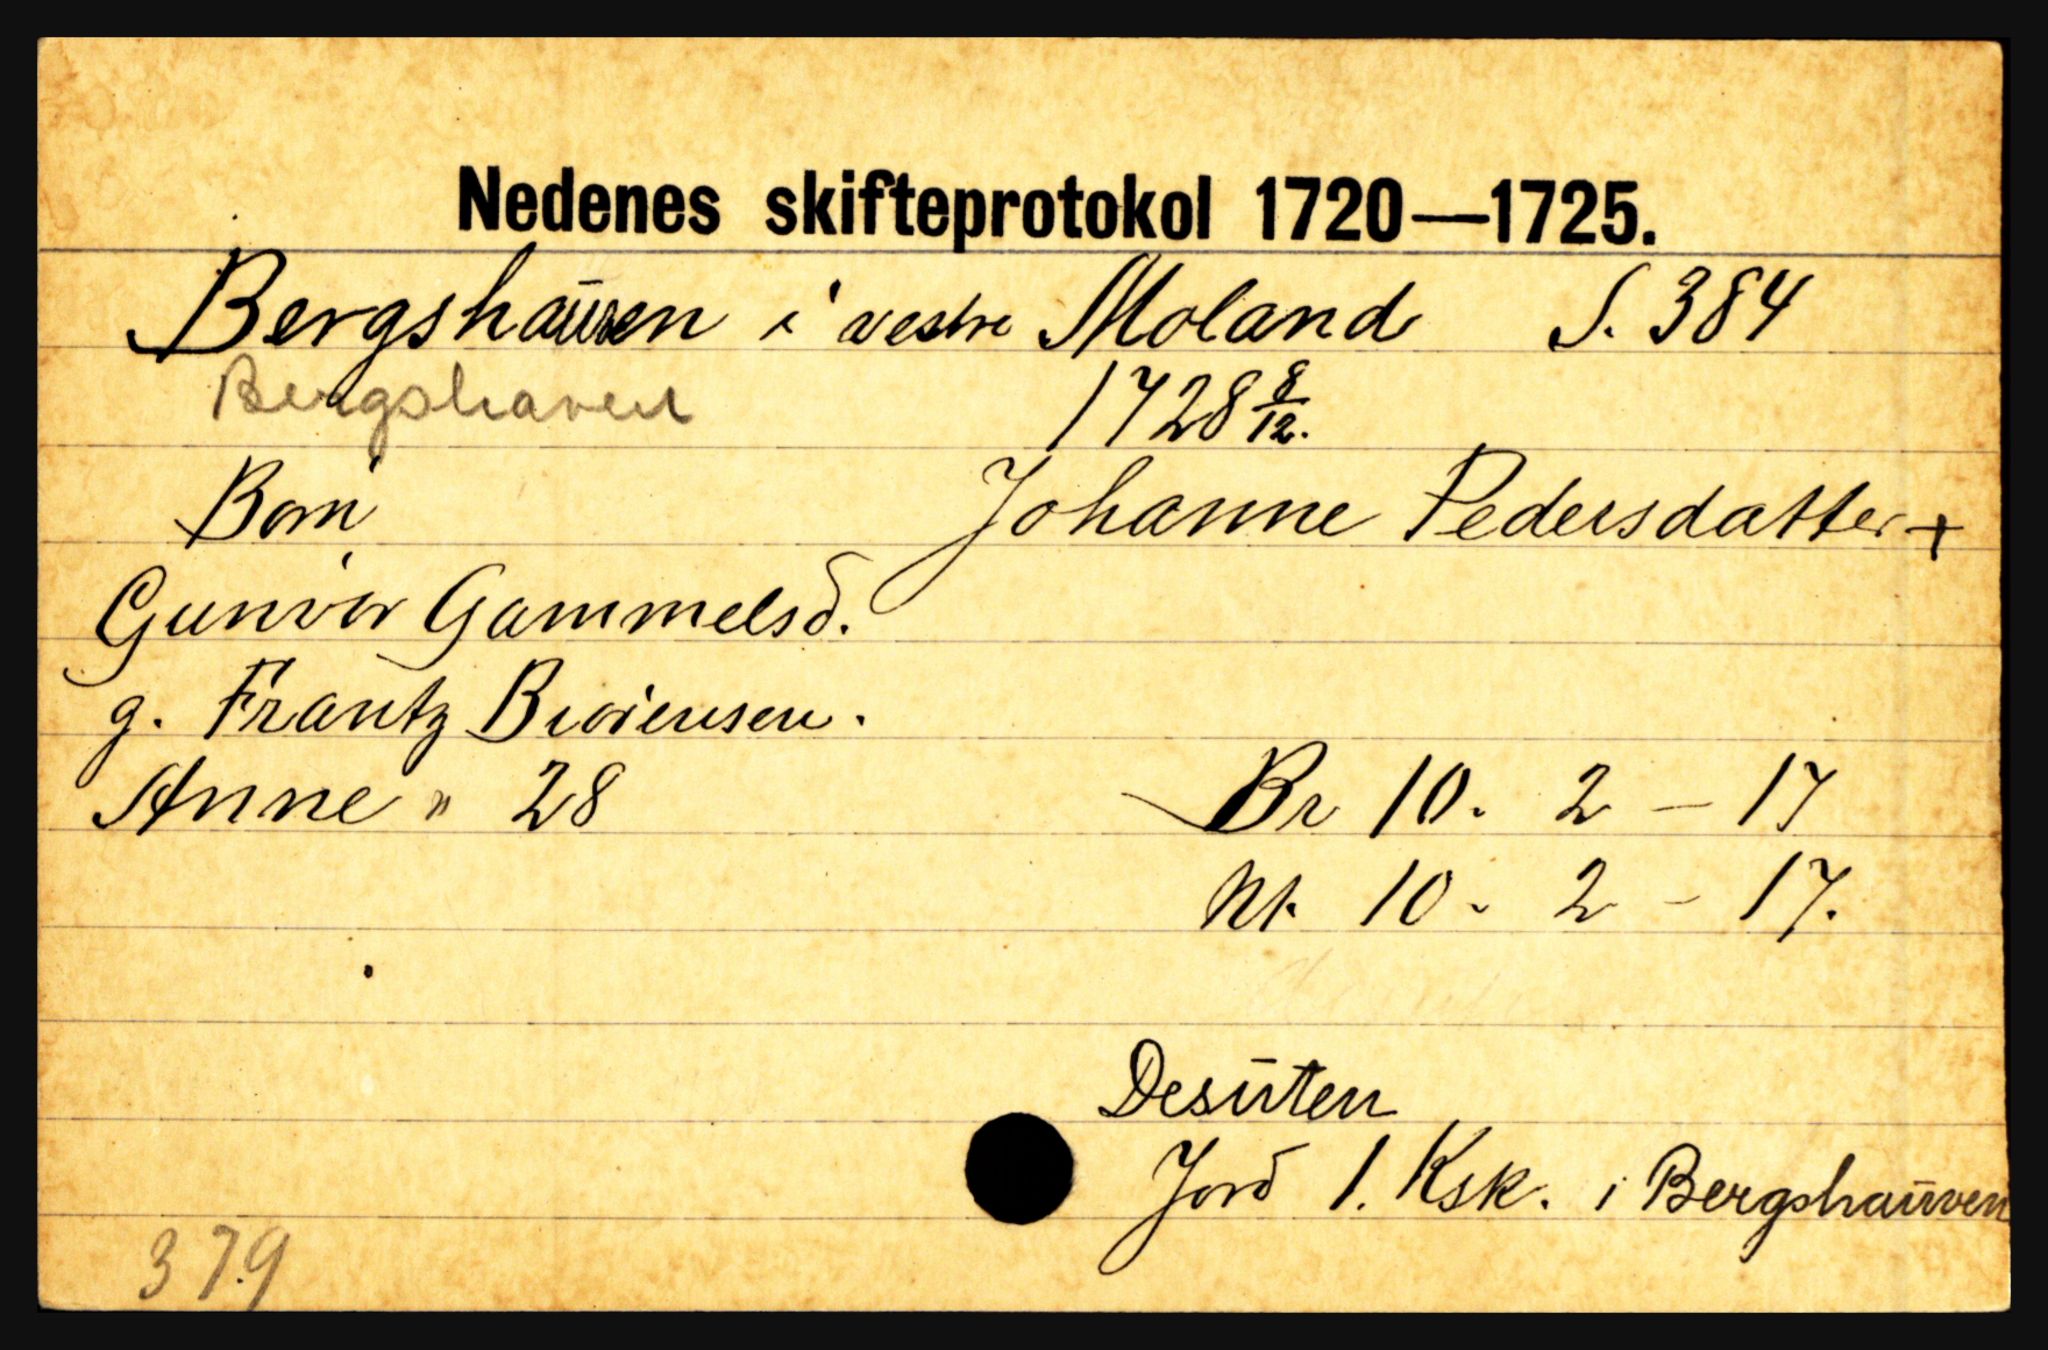 Nedenes skifteprotokol 1720—1725.
Bergshauven i vestre Moland S. 384
Bergshaven 1728 8/12.
Born Johanne Pedersdatter +
Gunvor Gammelsd.
g. Frantz
Anne " 28 Br 10. 2 - 17
Nt. 10 - 2 - 17.
Desuten
Jord 1. Ksk. i Bergshauven
379